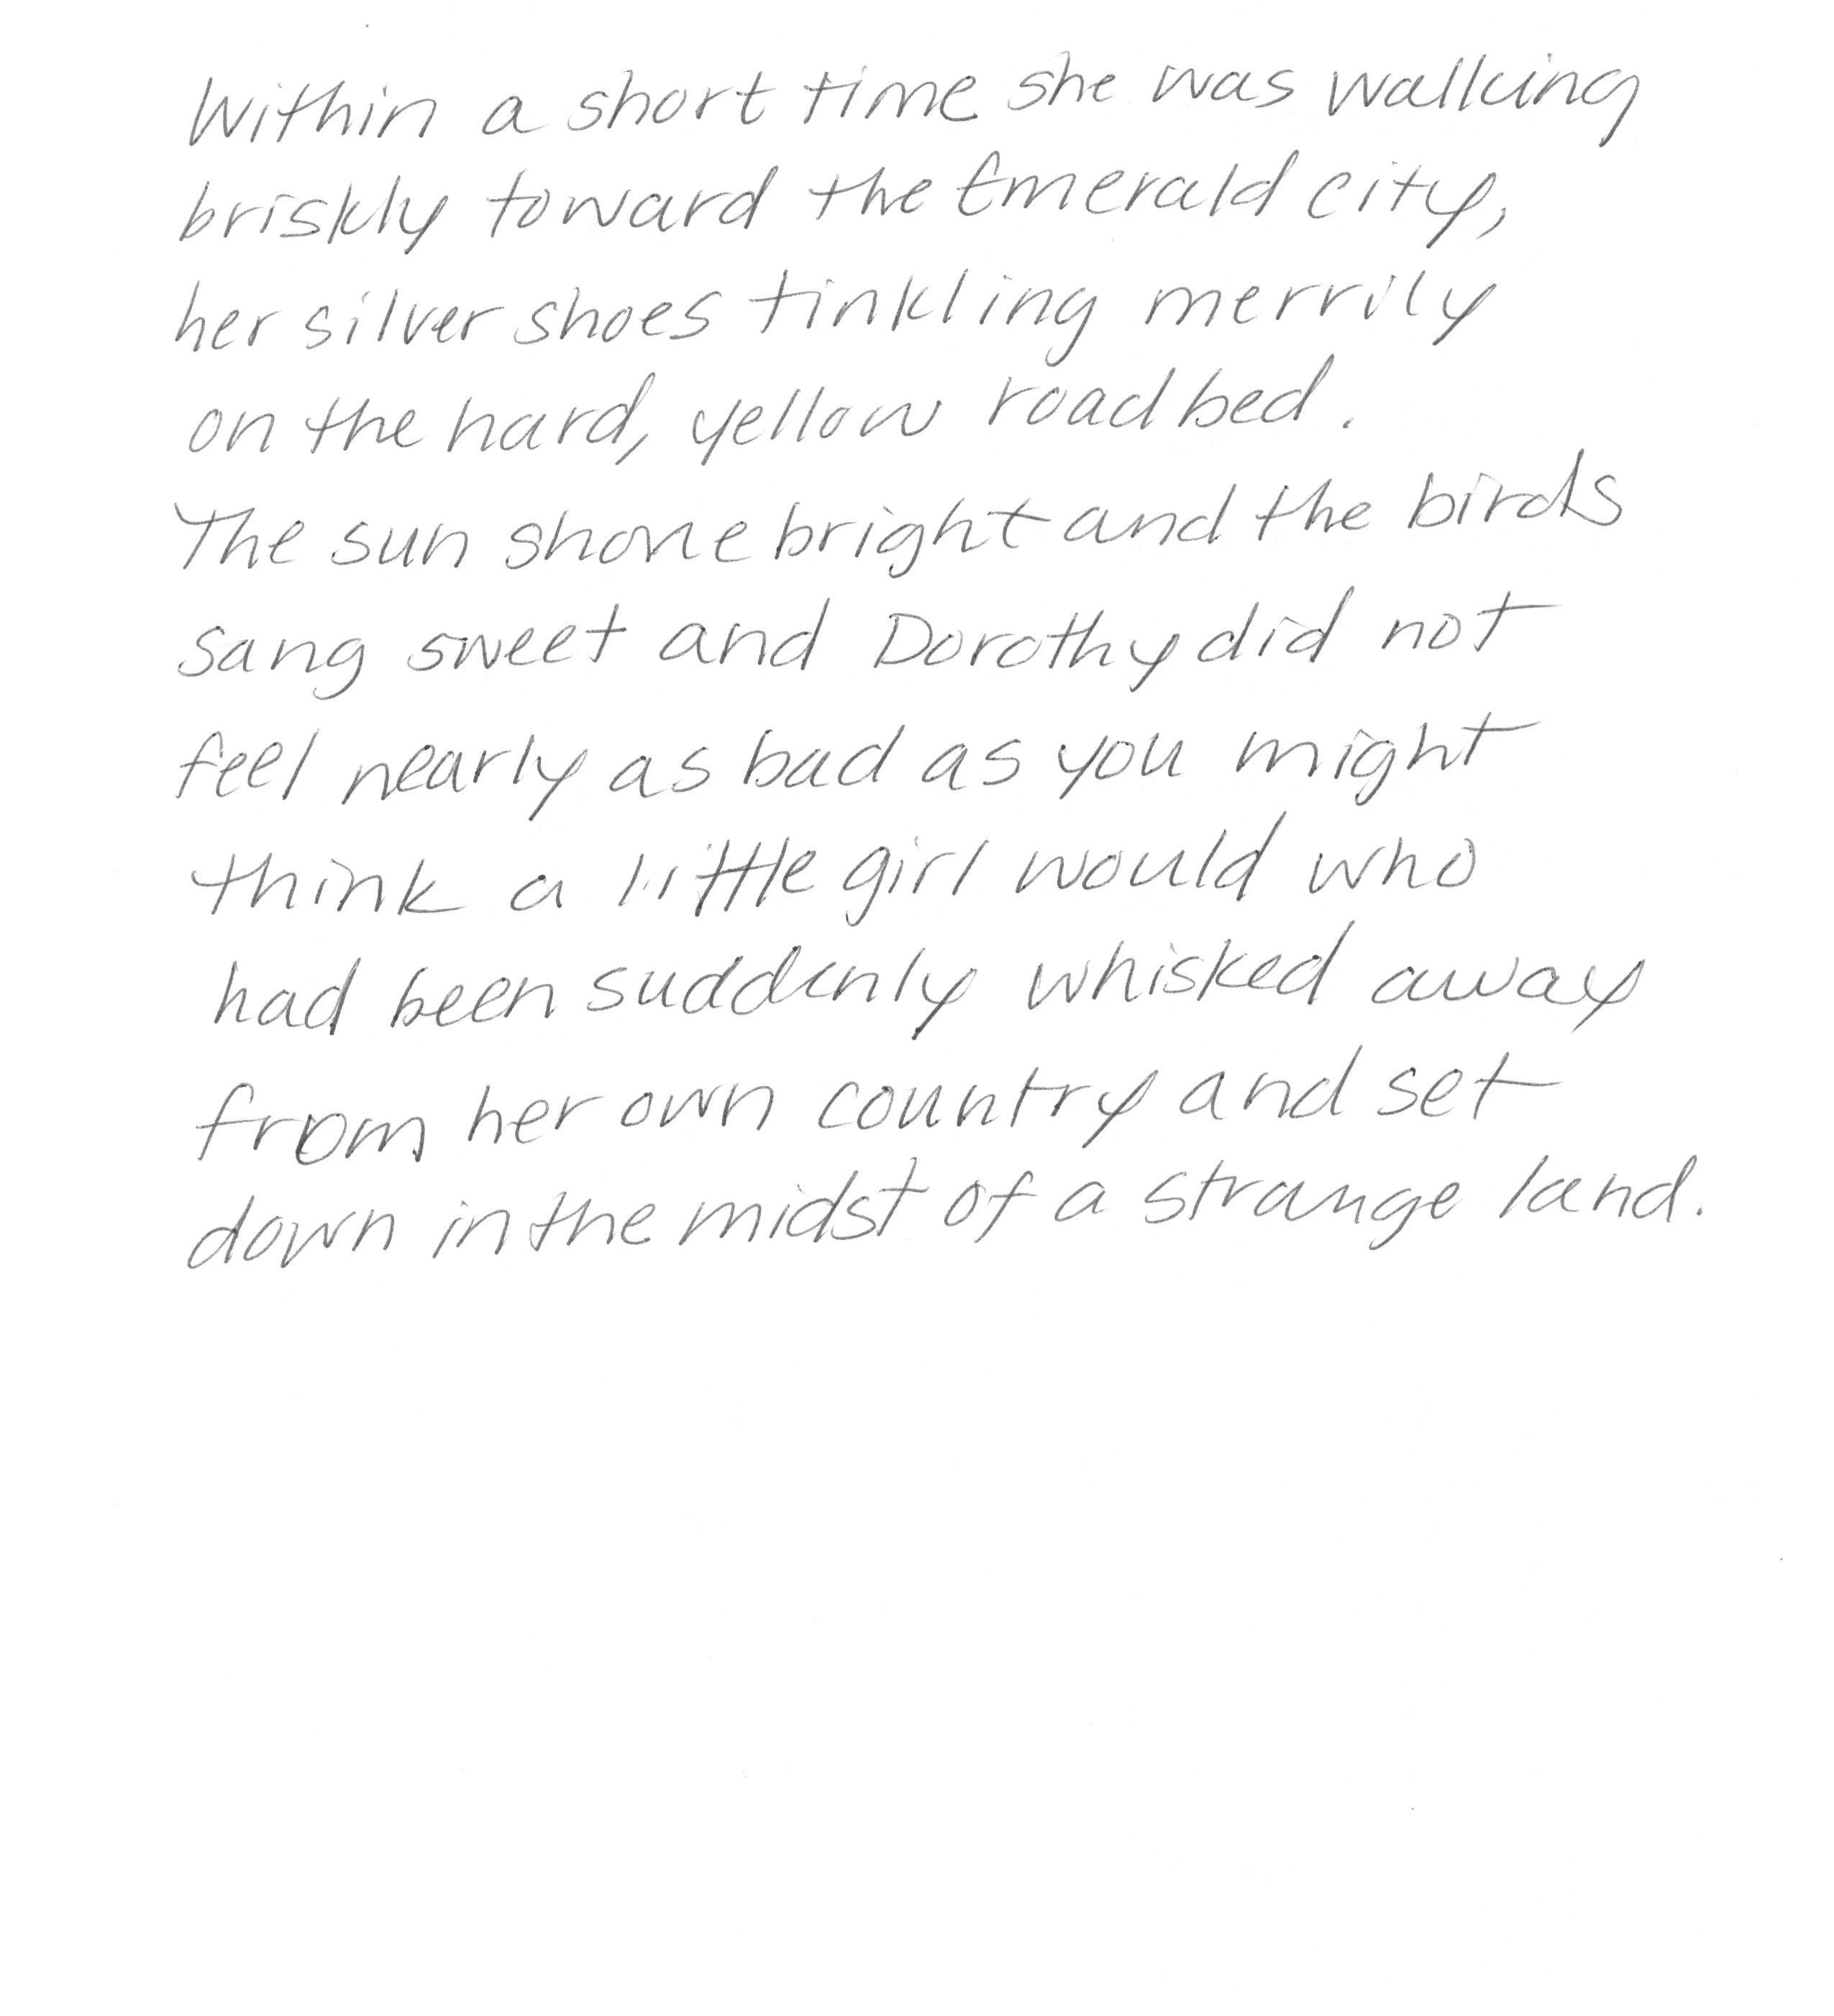 Within a short time she was walking
briskly toward the Emerald city,
her silver shoes tinkling merrily
on the hard, yellow roadbed.
The sun shone bright and the birds
sang sweet and Dorothy did not
feel nearly as bad as you might
think a little girl would who
had been suddenly whisked away
from her own country and set
down in the midst of a strange land.